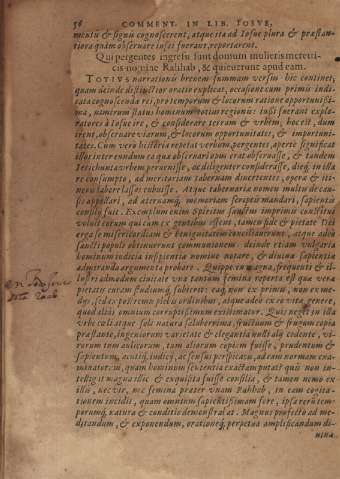 56 COMMENT. IN LIB. IOSVE,
mentu & signis cognoscerent, atque sta ad Iosue plura & præstan-
tiora quàm obseruare iussi fuerant, reportarent.
Qui pergentes ingressi sunt domum mulieris meretri-
cis nomine Rahhab, & quieuerunt apud eam.
TOTIVS narrationis breuem summam versus hic continet,
quam deinde distinctior oratio explicat, occasionem primùm indi-
cata cognoscenda rei, pro temporum & locorum ratione opportunissi-
ma, nimirum status hominum totius regionis: iussi fuerant explo-
ratores à Iosue ire, & considerare terram & vrbem, hoc est, dum
irent, obseruare viarum, & locorum opportunitates, & importuni-
tates. Cum verò historia repetat verbum, pergentes, apertè significat
illos inter eundum ea qua obseruari opus erat obseruasse, & tandem
Ierichuntis vrbem peruenisse, ac diligenter considerasse, dieq́; in illa
re consumpto, ad meritoriam tabernam diuertentes, opera & iti-
nere labore lassos cubuisse. Atque tabernaria nomen multis de cau-
sis appellari, ad aternamq́; memoriam scriptis mandari, sapientis
consilij fuit. Exemplum enim Spiritus sanctus imprimis constitui
voluit eorum qui cùm ex gentibus essent, tamen fide & pietate Dei
erga se misericordiam & benignitatem conciliauerunt, atque adeò
sancti populi obtinuerunt communionem. deinde etiam vulgaria
hominum iudicia insipientia nomine notare, & diuina sapientia
admiranda argumenta probare. Quippe ex magna, frequenti & il-
lustri admodum ciuitate vna tantum femina reperta est qua vera
pietatis curam studiumq́; susciperet: eaq́; non ex primis, non ex me-
dijs, sed ex postremis plebis ordinibus, atque adeò ex eo vita genere,
quod alijs omnium corruptissimum existimatur. Quis neget in illa
vrbe culta atque soli natura saluberrima, fructuum & frugum copia
præstante, ingeniorum varietate & elegantia nulli alij cedente, vi-
rorum tum aulicorum, tum aliorum copiam fuisse, prudentum &
sapientum, acutiq́; iudicij, ac sensus perspicaci, ad eam normam exa-
minatorum, quam hominum sententia exactam putat? quis non in-
telligit magna illic & exquisita fuisse consilia, & tamen nemo ex
illis, nec vir, nec femina præter vnam Rahhab, in eam cogita-
tionem incidit, quam omnium sapientissimam fore, ipsa rerum tem-
porumq́; natura & conditio demonstrat. Magnus profectò ad me-
ditandum, & exponendum, orationeq́; perpetua amplificandum di-
uina